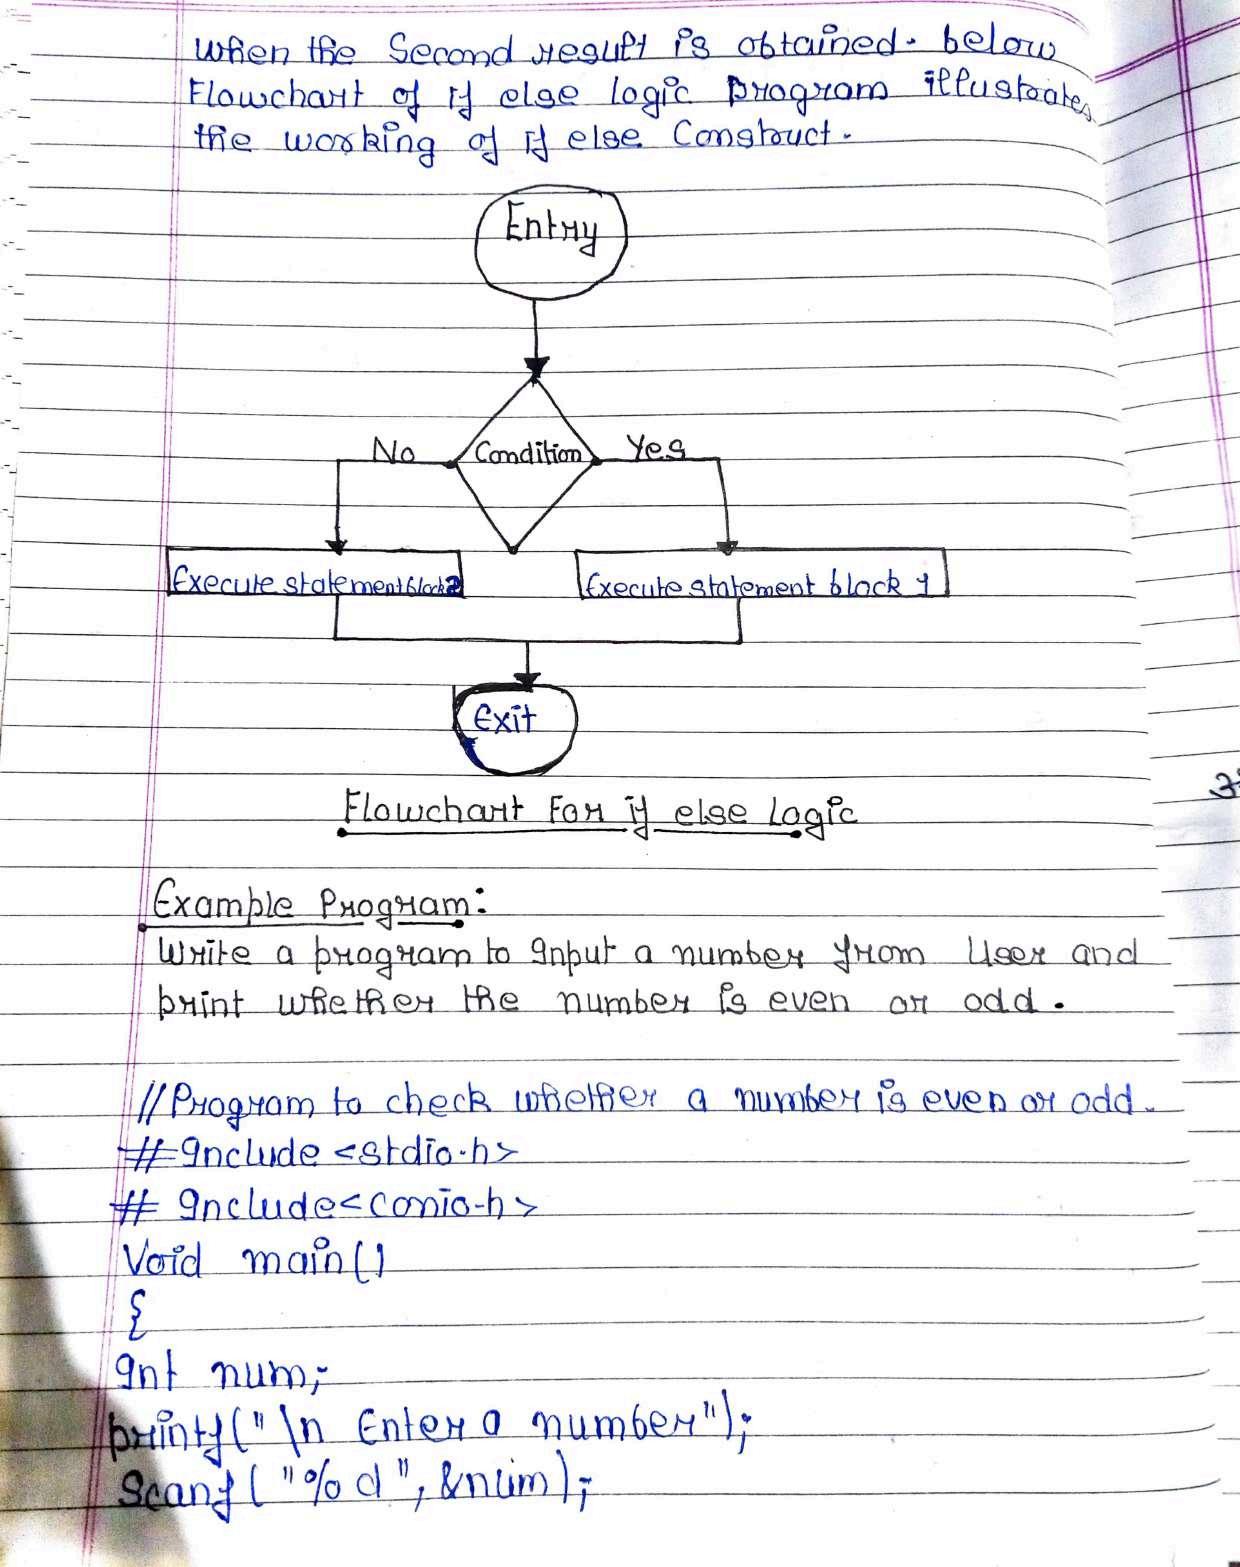 When the Second result is obtained. below
Flowchart of if else logic program illustrates
the working of if else Construct.
Entry
No Condition Yes
Execute statement block 2 Execute statement block 1
Exit
Flowchart For if else Logic
Example Program:
Write a program to Input a number from User and
print whether the number is even or odd.
//Program to check whether a number is even or odd.
# Include <stdio.h>
# Include<conio.h>
Void main()
{
Int num;
printf("\n Enter a number");
Scanf("%d", &num);